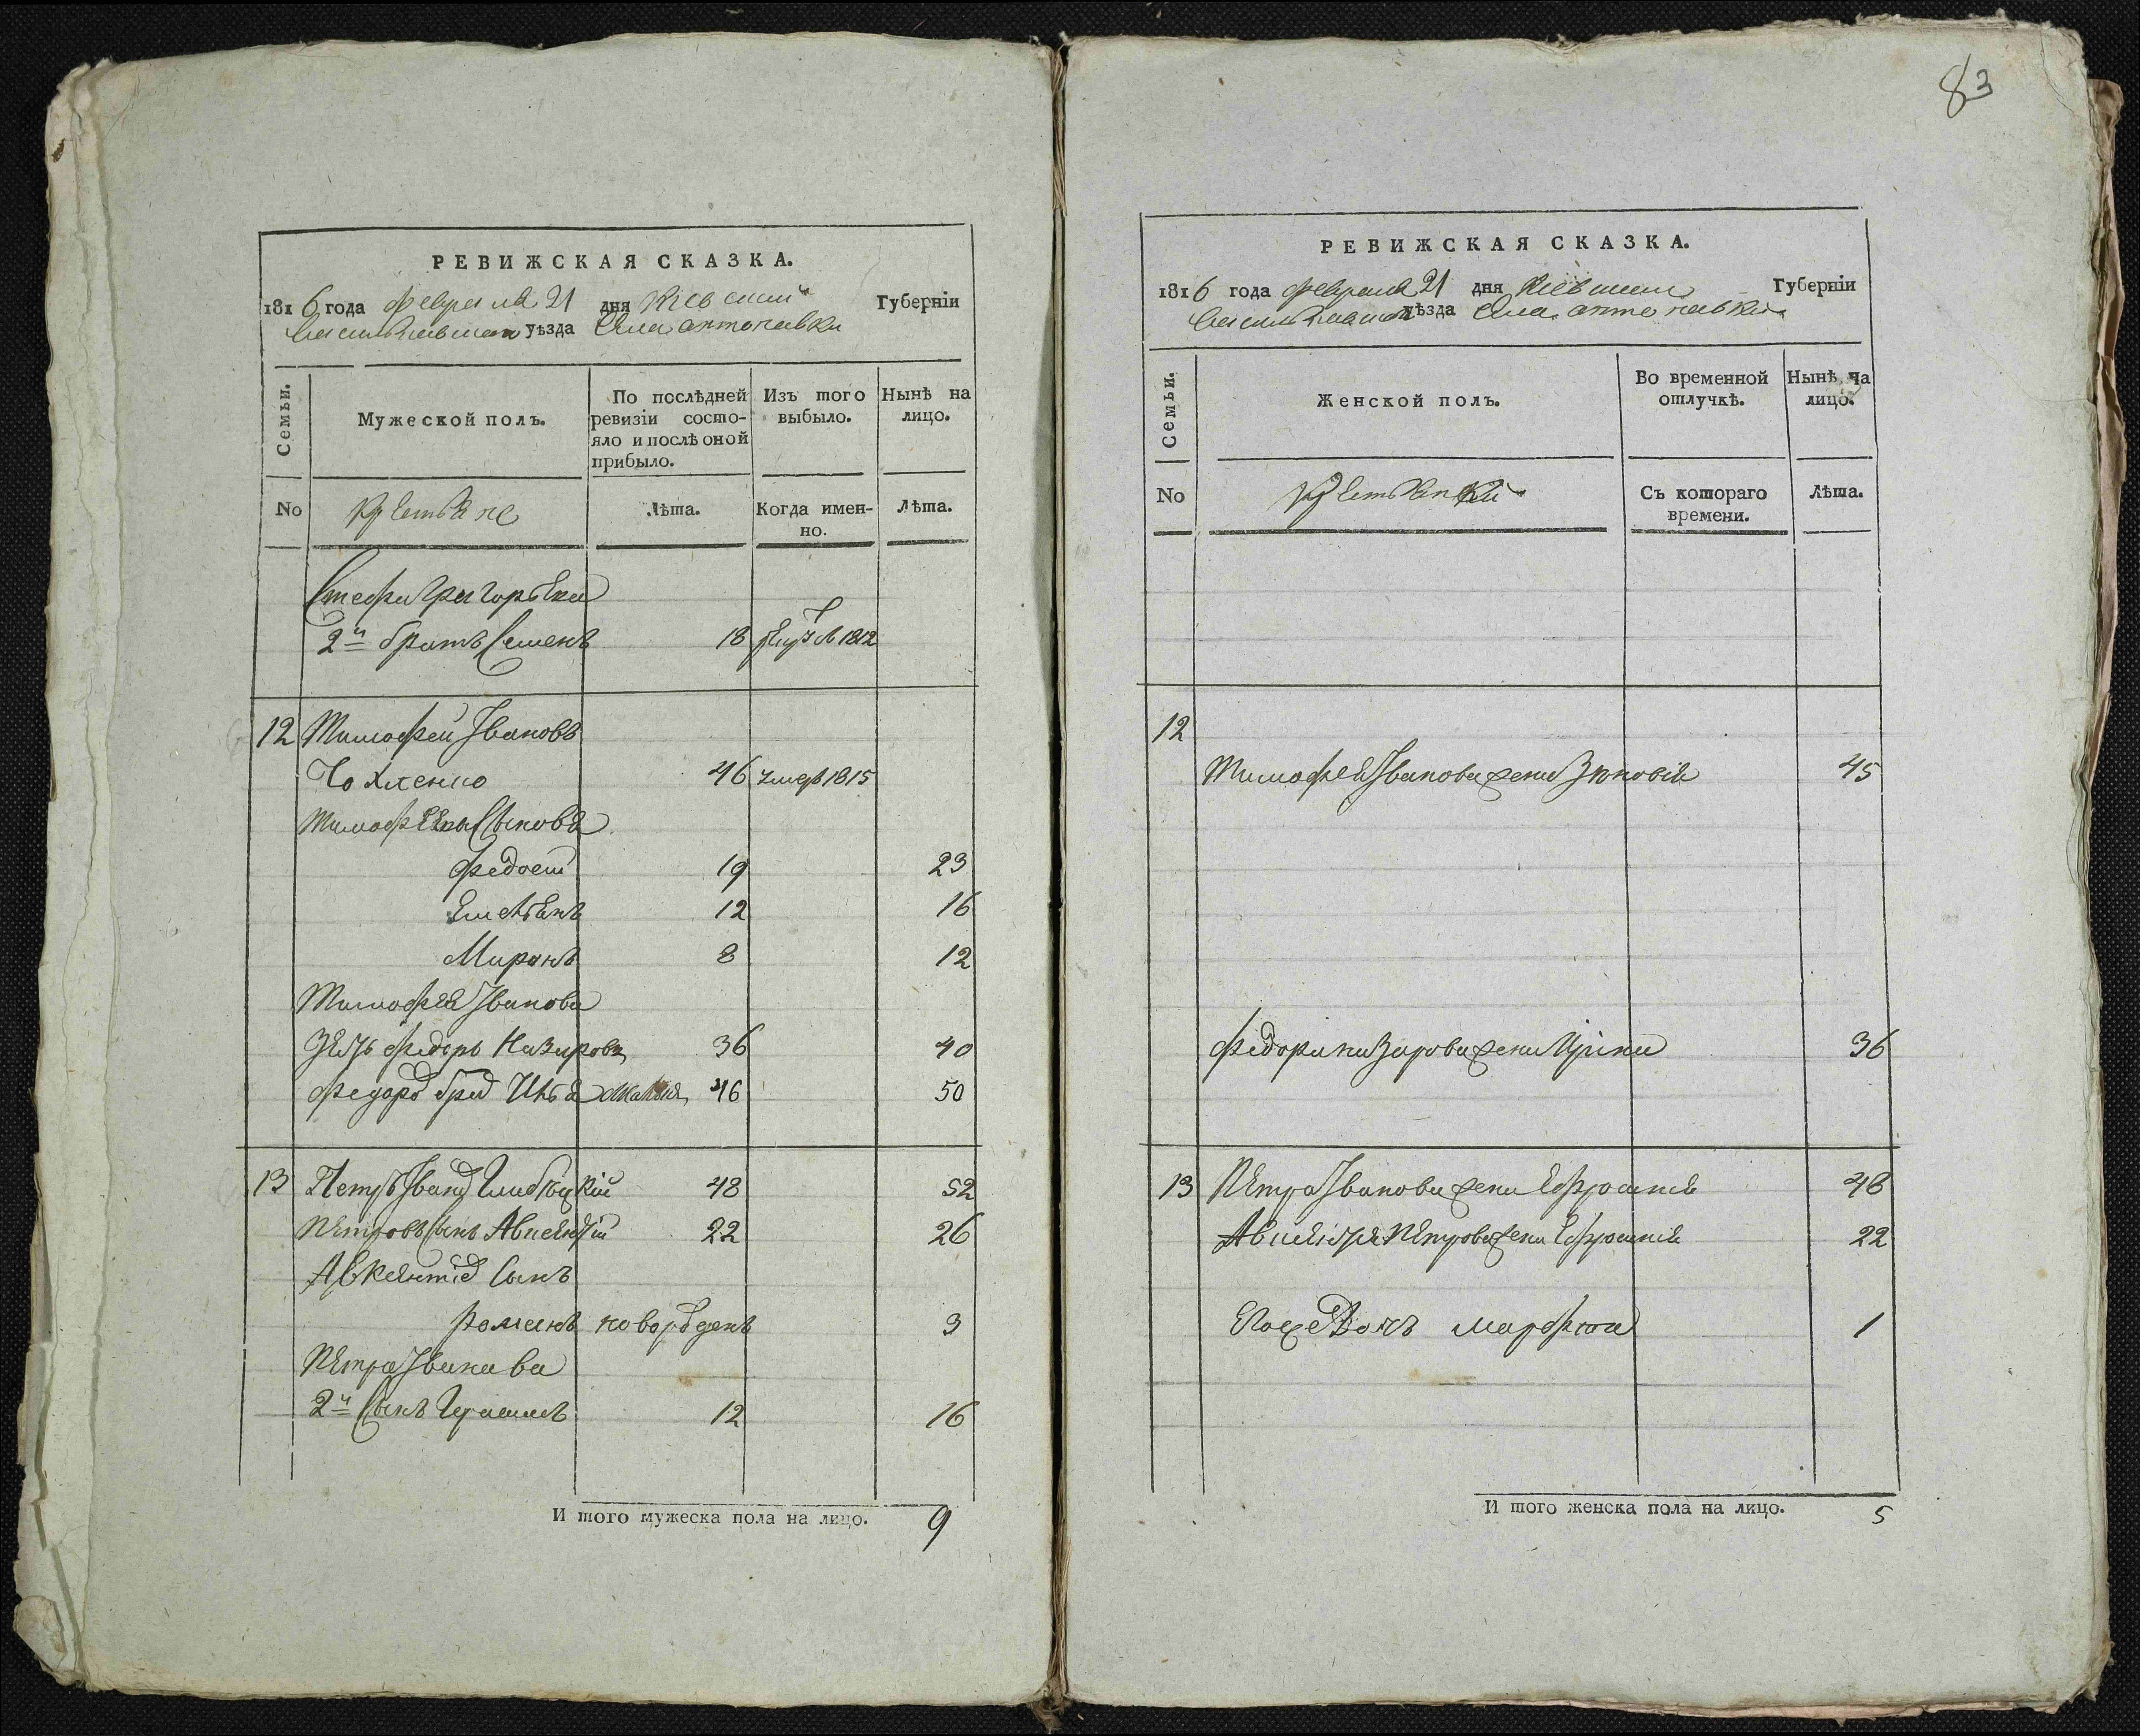 83
РЕВИЖСКАЯ СКАЗКА.
1816 года февраля 21 дня Кіевской Губерніи
Васильковскаго уѣзда Села антоновки
Семьи.
Мужеской полъ.
По послѣдней ревизіи состояло и послѣ оной прибыло.
Изъ того выбыло.
Нынѣ на лицо.
No
крестьяне
Лѣта.
Когда именно.
Лѣта.
Григорьева
2й братъ Семенъ 18 1812
12 Тимофей Ивановъ
46 умеръ 1815
Тимофеевы Сыновья
федосей 19 23
Емельянъ 12 16
Миронъ 8 12
Тимофея Иванова
Зять федоръ Назаровъ 36 40
46 50
13 Петръ 48 52
Петровъ Сынъ Авксентій 22 26
Авксентія Сынъ
романъ новорожденъ 3
Петра Иванова
2й Сынъ Герасимъ 12 16
И того мужеска пола на лицо. 9
РЕВИЖСКАЯ СКАЗКА.
1816 года февраля 21 дня Кіевской Губерніи
Васильковскаго уѣзда Села антоновки
Семьи.
Женской полъ.
Во временной отлучкѣ.
Нынѣ на лицо.
No
крестьянки
Съ котораго времени.
Лѣта.
12
Тимофея Иванова жена Зѣновія 45
федора Назарова жена Ирина 36
13 Петра Иванова жена Ефросинія 48
Авксентія Петрова жена Ефросинія 22
Его же Дочь марфа 1
И того женска пола на лицо. 5